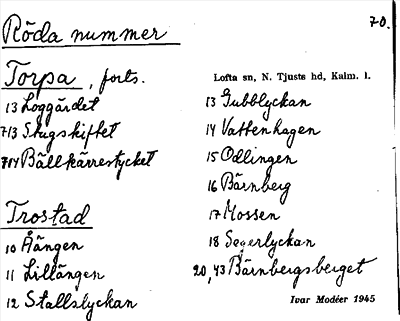 70.
Röda nummer
Torpa, forts.
13 Loggärdet
713 Skogskiftet
714 Bällkärrestycket
Trostad
10 Åängen
11 Lillängen
12 Stallslyckan
Lofta sn, N. Tjusts hd, Kalm. l.
13 Gubblyckan
14 Vattenhagen
15 Odlingen
16 Bärnberg
17 Mossen
18 Segerlyckan
20, 43 Bärnbergsberget
Ivar Modéer 1945